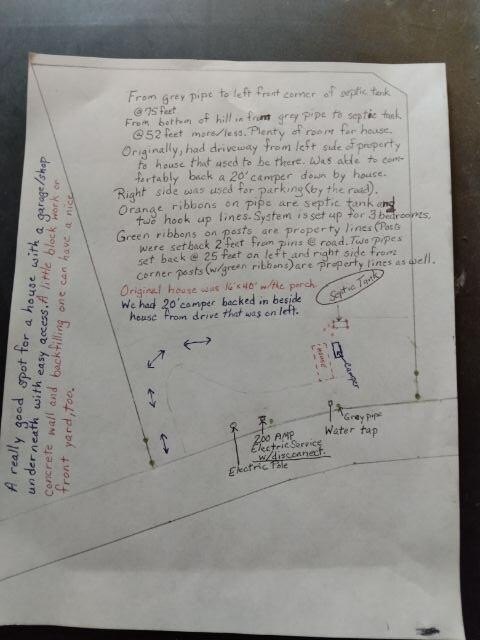 From grey pipe to left front corner of septic tank
@ 75 feet
From bottom of hill in front grey pipe to septic tank
@ 52 feet more/less. Plenty of room for house.
Originally, had driveway from left side of property
to house that used to be there. Was able to com-
fortably back a 20' camper down by house.
Right side was used for parking (by the road).
Orange ribbons on pipe are septic tank and
two hook up lines. System is set up for 3 bedrooms.
Green ribbons on posts are property lines (Posts
were setback 2 feet from pins @ road. Two pipes
set back @ 25 feet on left and right side from
corner posts (w/green ribbons) are property lines as well.
Original house was 16'x40' w/the porch.
We had 20' camper backed in beside
house from drive that was on left.
Septic Tank
House
Camper
Grey pipe
Water tap
200 AMP
Electric Service
w/disconnect.
Electric Pole
A really good spot for a house with a garage/shop
underneath with easy access. A little block work or
concrete wall and backfilling one can have a nice
front yard, too.